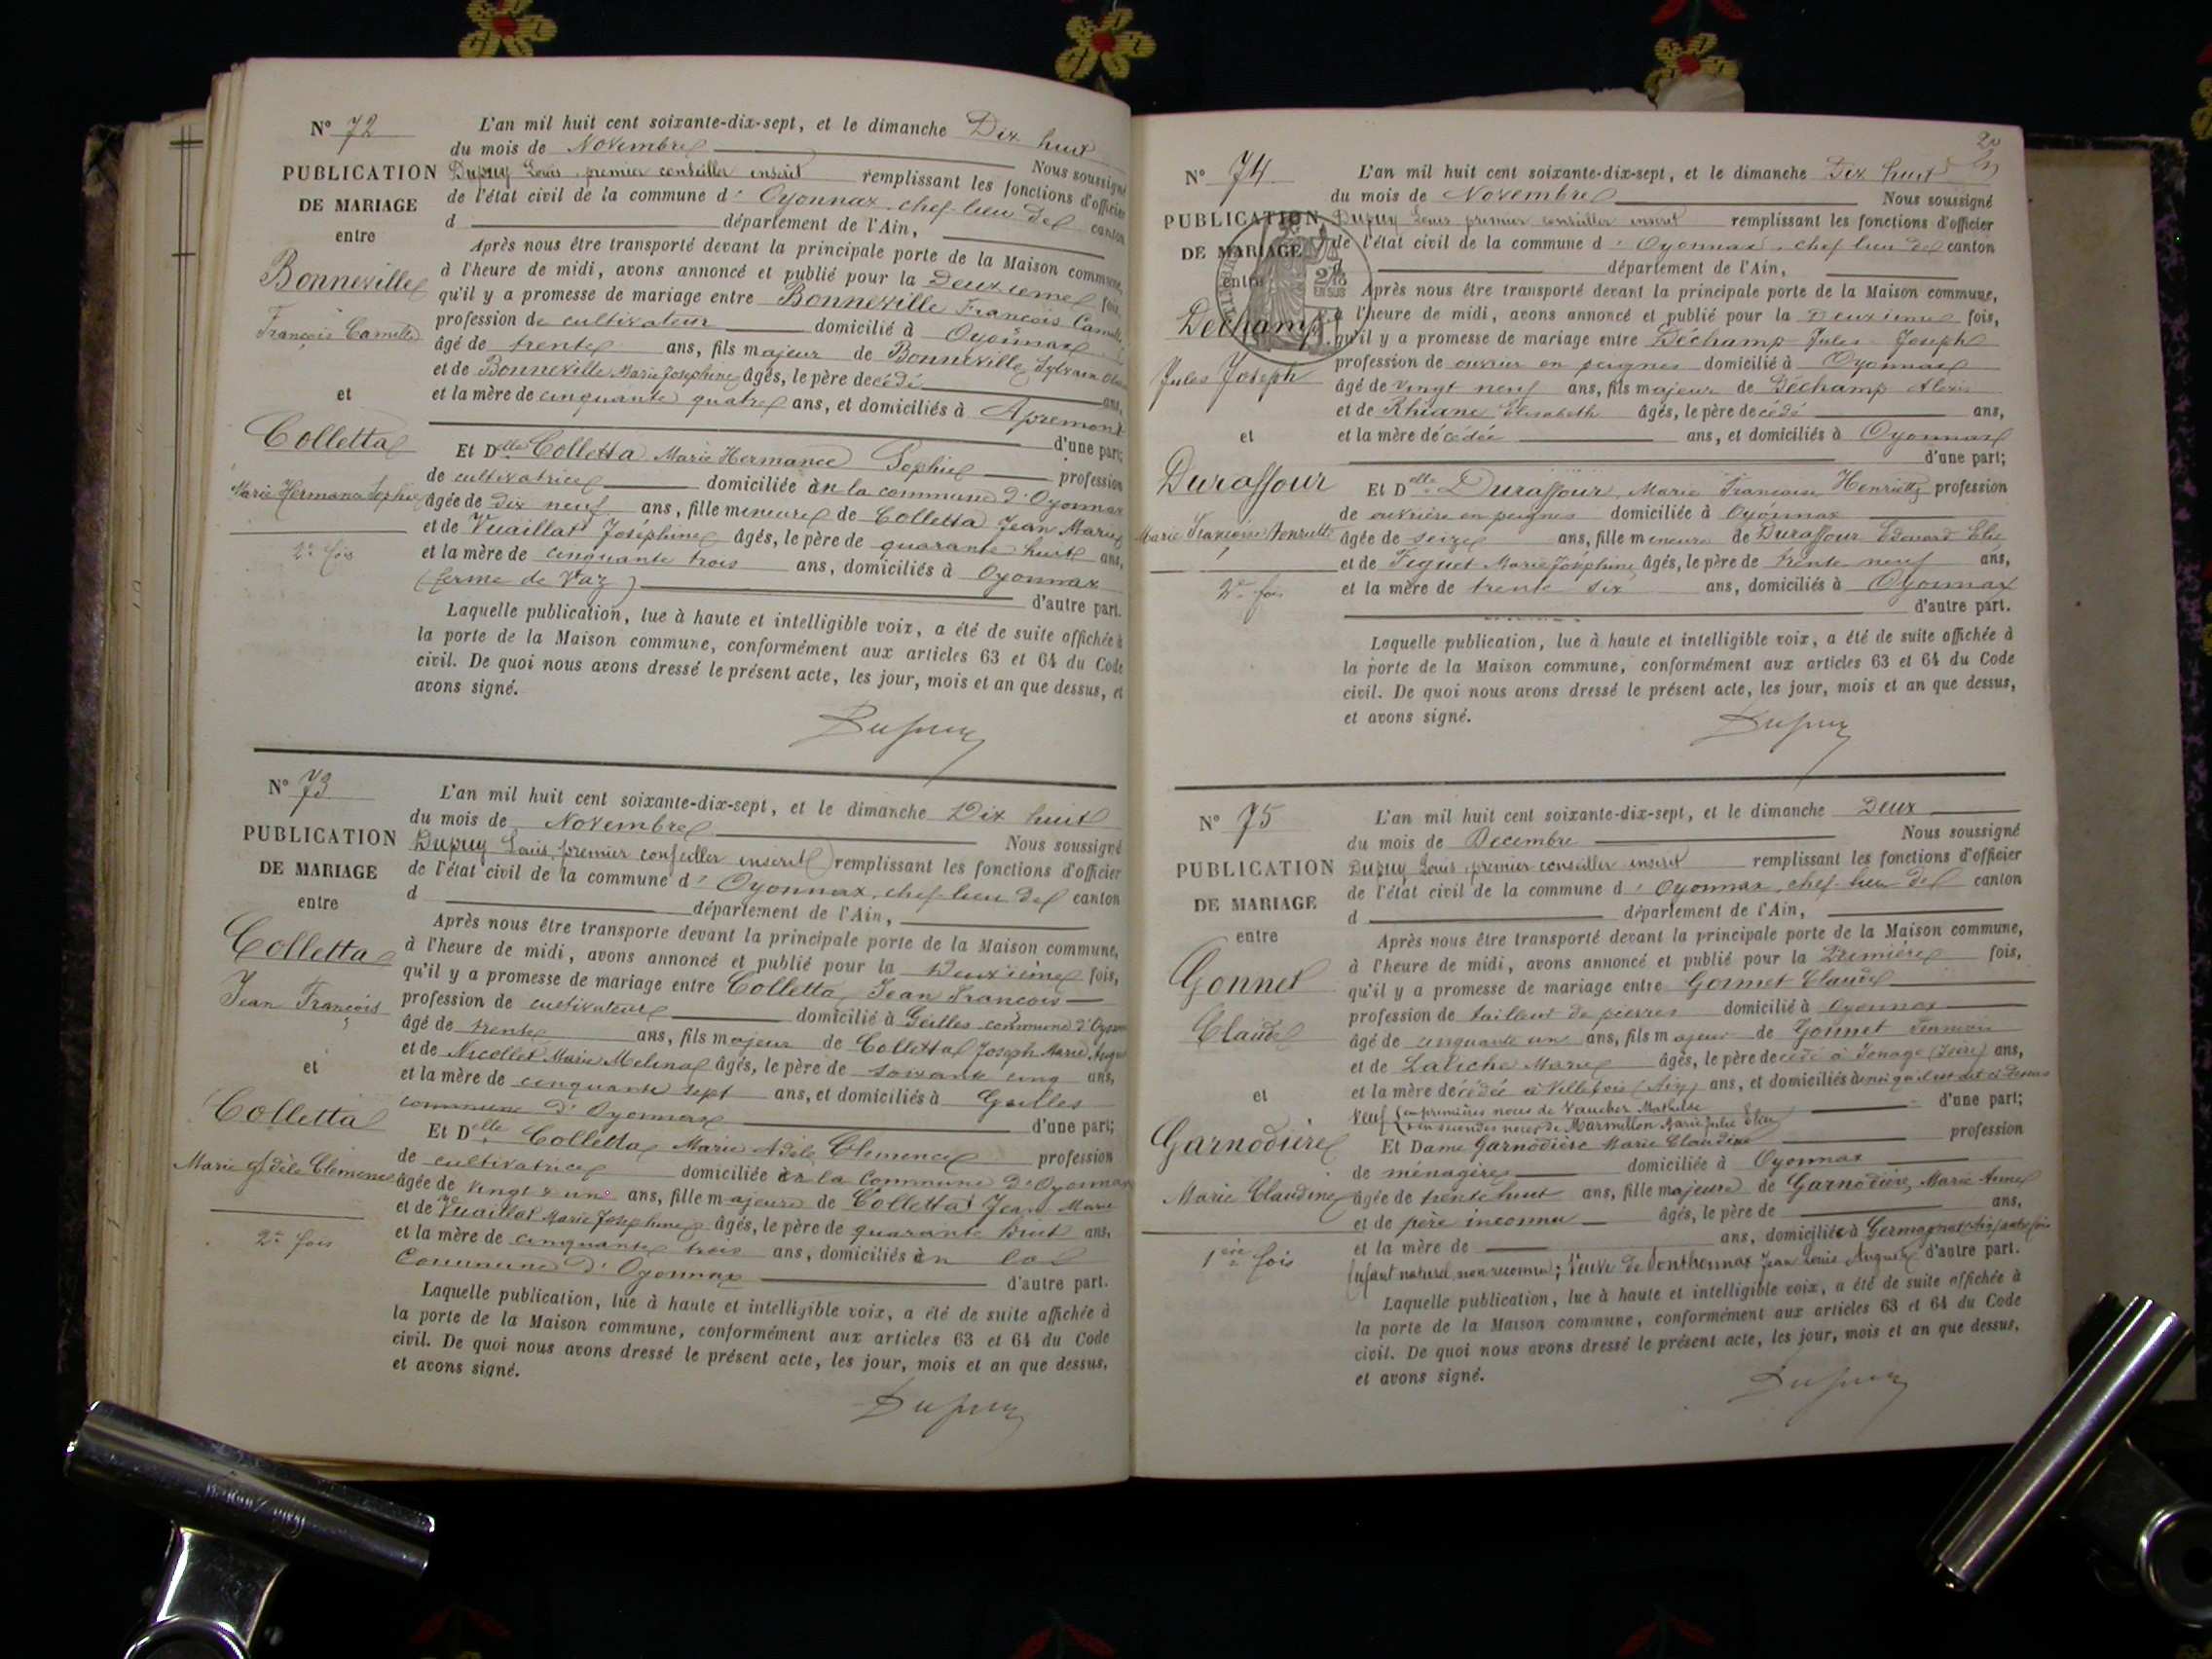 N° 72
PUBLICATION
DE MARIAGE
entre
Bonneville
François Camille
et
Colletta
Marie Hermance Sophie
2e fois
L'an mil huit cent soixante-dix-sept, et le dimanche Dix huit
du mois de Novembre Nous soussigné
Dupuy Louis, premier conseiller inscrit remplissant les fonctions d'officier
de l'état civil de la commune d'Oyonnax, chef-lieu de canton
d département de l'Ain,
Après nous être transporté devant la principale porte de la Maison commune,
à l'heure de midi, avons annoncé et publié pour la Deuxième fois,
qu'il y a promesse de mariage entre Bonneville François Camille
profession de cultivateur domicilié à Oyonnax
âgé de trente ans, fils majeur de Bonneville Sylvain
et de Bonneville Marie Josephine âgés, le père decédé ans,
et la mère de cinquante quatre ans, et domiciliés à Apremont
d'une part;
Et Delle Colletta Marie Hermance Sophie profession
de cultivatrice domiciliée en la commune d'Oyonnax
âgée de dix neuf ans, fille meneure de Colletta Jean Marie
et de Vuaillat Joséphine âgés, le père de quarante huit ans,
et la mère de cinquante trois ans, domiciliés à Oyonnax
(ferme de Vaz)
d'autre part.
Laquelle publication, lue à haute et intelligible voix, a été de suite affichée à
la porte de la Maison commune, conformément aux articles 63 et 64 du Code
civil. De quoi nous avons dressé le présent acte, les jour, mois et an que dessus, et
avons signé.
Dupuy
N° 73
PUBLICATION
DE MARIAGE
entre
Colletta
Jean François
et
Colletta
Marie Adèle Clémence
2e fois
L'an mil huit cent soixante-dix-sept, et le dimanche Dix huit
du mois de Novembre Nous soussigné
Dupuy Louis, premier conseiller inscrit remplissant les fonctions d'officier
de l'état civil de la commune d'Oyonnax, chef-lieu de canton
d département de l'Ain,
Après nous être transporté devant la principale porte de la Maison commune,
à l'heure de midi, avons annoncé et publié pour la Deuxième fois,
qu'il y a promesse de mariage entre Colletta Jean François
profession de cultivateur domicilié à Geilles commune d'Oyonnax
âgé de trente ans, fils majeur de Colletta Joseph Marie
et de Nicollet Marie Melina âgés, le père de soixante cinq ans,
et la mère de cinquante sept ans, et domiciliés à Geilles
commune d'Oyonnax d'une part;
Et Delle Colletta Marie Adèle Clemence profession
de cultivatrice domiciliée en la Commune d'Oyonnax
âgée de vingt & un ans, fille majeure de Colletta Jean Marie
et de Vuaillat Marie Josephine âgés, le père de quarante huit ans,
et la mère de cinquante trois ans, domiciliés en la
Commune d'Oyonnax d'autre part.
Laquelle publication, lue à haute et intelligible voix, a été de suite affichée à
la porte de la Maison commune, conformément aux articles 63 et 64 du Code
civil. De quoi nous avons dressé le présent acte, les jour, mois et an que dessus,
et avons signé.
Dupuy
20
N° 74
PUBLICATION
DE MARIAGE
entre
Dechamp
Jules Joseph
et
Duraffour
Marie Françoise Henriette
2e fois
L'an mil huit cent soixante-dix-sept, et le dimanche Dix huit
du mois de Novembre Nous soussigné
Dupuy Louis premier conseiller inscrit remplissant les fonctions d'officier
de l'état civil de la commune d'Oyonnax, chef lieu de canton
département de l'Ain,
Après nous être transporté devant la principale porte de la Maison commune,
à l'heure de midi, avons annoncé et publié pour la Deuxième fois,
qu'il y a promesse de mariage entre Déchamp Jules Joseph
profession de ouvrier en peignes domicilié à Oyonnax
âgé de vingt neuf ans, fils majeur de Déchamp Alexis
et de Rhiane Elisabeth âgés, le père decédé ans,
et la mère décédée ans, et domiciliés à Oyonnax
d'une part;
Et Delle Duraffour, Marie Françoise Henriette profession
de ouvrière en peignes domiciliée à Oyonnax
âgée de seize ans, fille meneure de Duraffour Edouard Elie
et de Figuet Marie Joséphine âgés, le père de trente neuf ans,
et la mère de trente six ans, domiciliés à Oyonnax
d'autre part.
Laquelle publication, lue à haute et intelligible voix, a été de suite affichée à
la porte de la Maison commune, conformément aux articles 63 et 64 du Code
civil. De quoi nous avons dressé le présent acte, les jour, mois et an que dessus,
et avons signé.
Dupuy
N° 75
PUBLICATION
DE MARIAGE
entre
Gonnet
Claude
et
Garnodière
Marie Claudine
1ère fois
L'an mil huit cent soixante-dix-sept, et le dimanche Deux
du mois de Decembre Nous soussigné
Dupuy Louis premier conseiller inscrit remplissant les fonctions d'officier
de l'état civil de la commune d'Oyonnax, chef-lieu de canton
d département de l'Ain,
Après nous être transporté devant la principale porte de la Maison commune,
à l'heure de midi, avons annoncé et publié pour la Première fois,
qu'il y a promesse de mariage entre Gonnet Claude
profession de tailleur de pierres domicilié à Oyonnax
âgé de cinquante un ans, fils majeur de Gonnet
et de Laliche Marie âgés, le père decédé à Jonage (Isère) ans,
et la mère décédée à Villebois (Ain) ans, et domiciliés ainsi qu'il est dit ci dessus
Veuf en premières noces de Vaucher Mathilde d'une part;
& en secondes noces de Marmillon Marie Julie
Et Dame Garnodière Marie Claudine profession
de ménagère domiciliée à Oyonnax
âgée de trente huit ans, fille majeure de Garnodière Marie Anne
et de père inconnu âgés, le père de ans,
et la mère de ans, domiciliée à Germagnat
Enfant naturel non reconnu; Veuve de Ponthonnax Jean Louis Auguste d'autre part.
Laquelle publication, lue à haute et intelligible voix, a été de suite affichée à
la porte de la Maison commune, conformément aux articles 63 et 64 du Code
civil. De quoi nous avons dressé le présent acte, les jour, mois et an que dessus,
et avons signé.
Dupuy